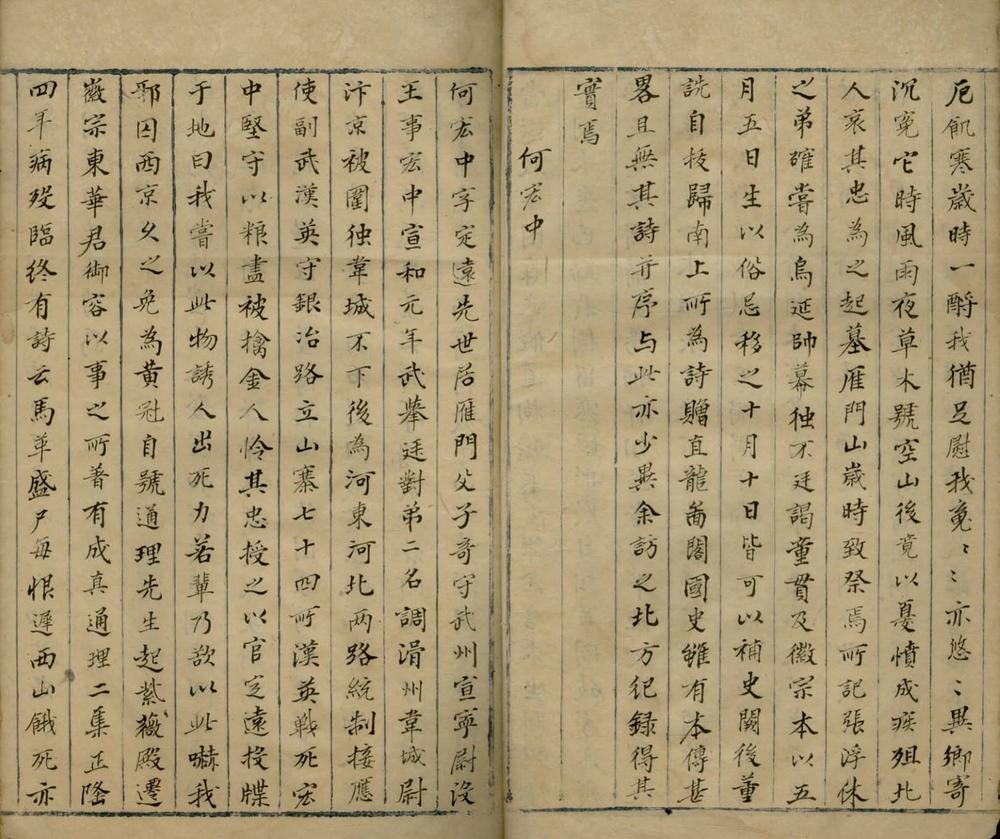 厄飢寒歲時一酹我猶足慰我寃〻亦悠〻異鄉寄
沉寃它時風雨夜草木號空山後竟以憂憤成疾殂北
人哀其忠為之起墓雁門山歲時致祭焉所記張浮休
之弟確嘗為鳥延帥幕独不廷謁童貫及徽宗本以五
月五日生以俗忌移之十月十日皆可以補史闕後董
詵自拔歸南上所為詩贈直龍啚閣國史雖有本傳甚
畧且無其詩并序与此亦少異余訪之北方纪録得其
實焉
何宏中
何宏中字定遠先世居雁門父子奇守武州宣寧尉没
王事宏中宣和元年武舉廷對弟二名調滑州韋城尉
汴京被圍独韋城不下後為河東河北两路統制接應
使副武漢英守銀冶路立山寨七十四所漢英戰死宏
中堅守以粮盡被擒金人怜其忠授之以官定遠投牒
于地曰我嘗以此物誘人出死力若輩乃欲以此嚇我
邪囚西京久之免為黄冠自號通理先生起紫薇殿遷
徽宗東華君御容以事之所著有成真通理二集正隆
四年病殁臨终有詩云馬革盛尸每恨遲西山餓死亦